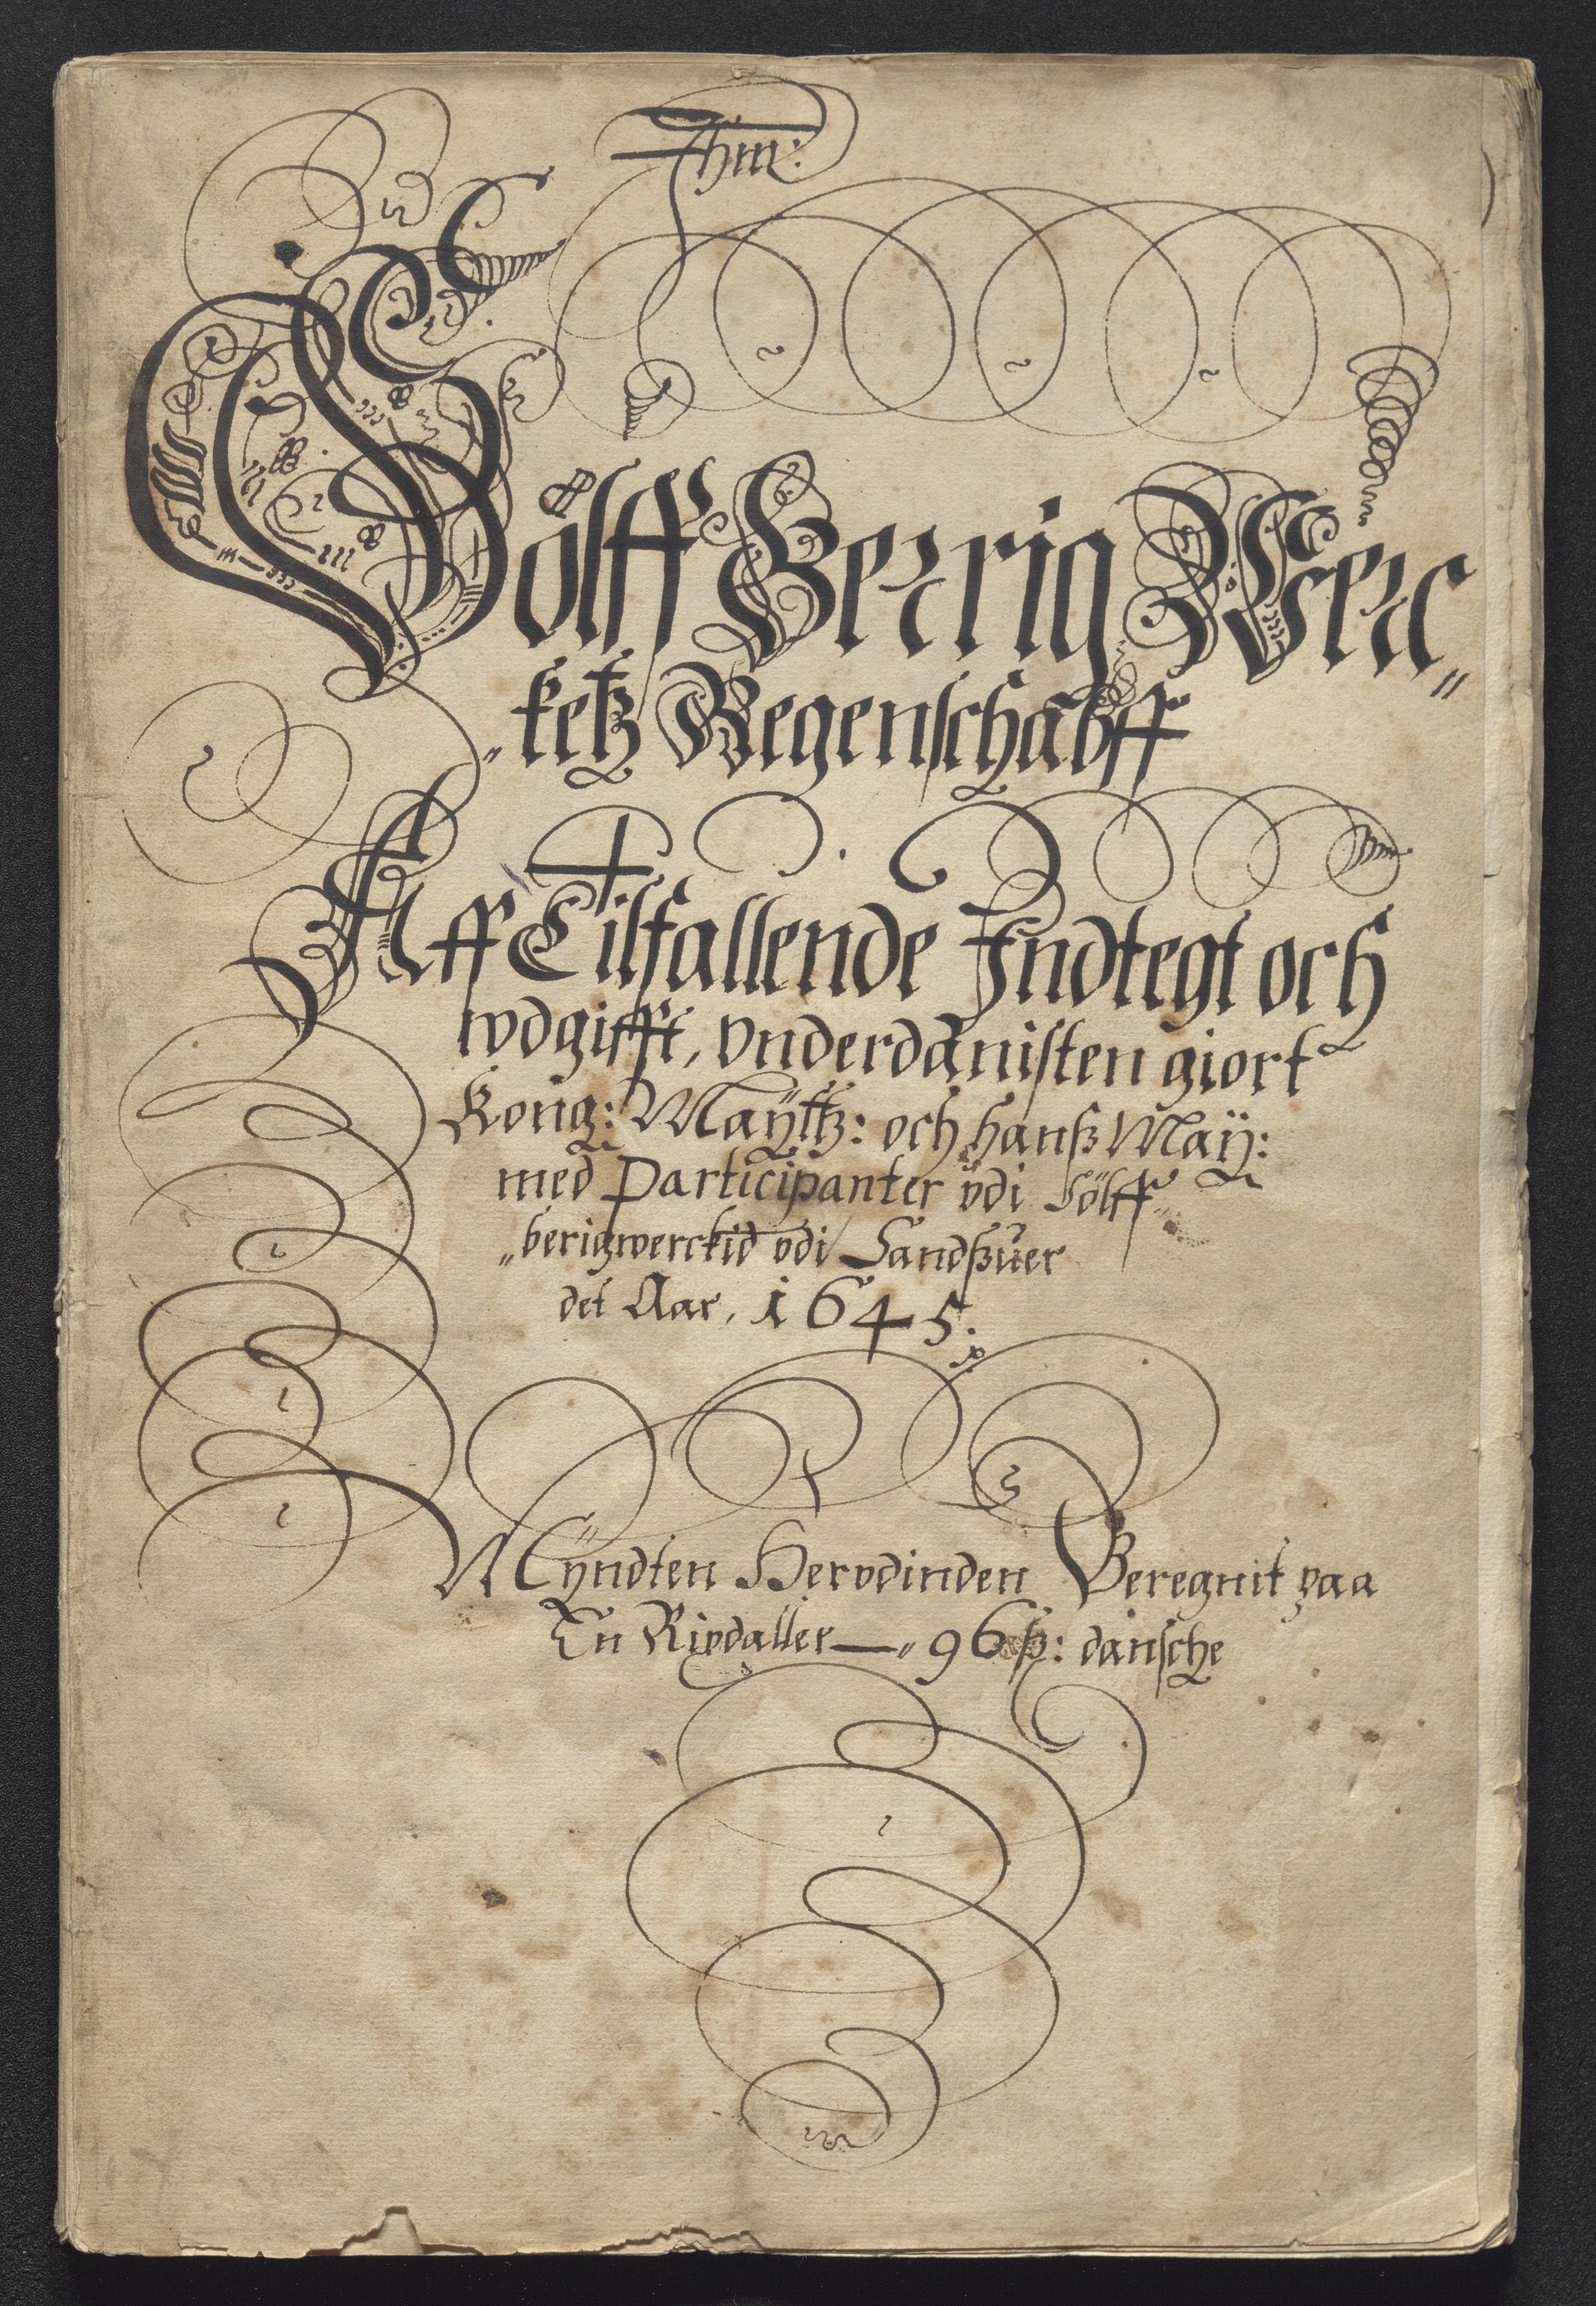 Jhm:
Sölff Berrig Werc„
„ketz Regenschabff
Aff Tilfallende Jndtegt och
wdgifft, vnderdånisten giort
Konig: Mayttz: och hanß May:
med Participanter vdi Sölff„
„berigwerckid vdi Sandßuer
det Aar, 1645.
Myndten Hervdinden Beregnit paa
En Rixdaller — „ 96 ß: dansche